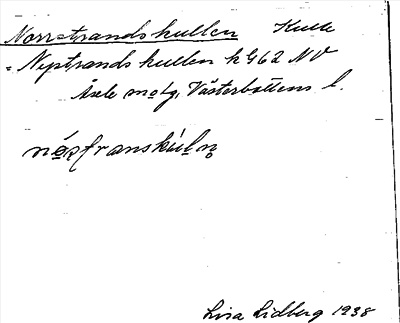 Norrstrandskullen Kulle
= Nystrandskullen k G62 NV
Åsele mslg. Västerbottens l.
nó̱sfranskùl̥n̥
Lisa Lidberg 1938